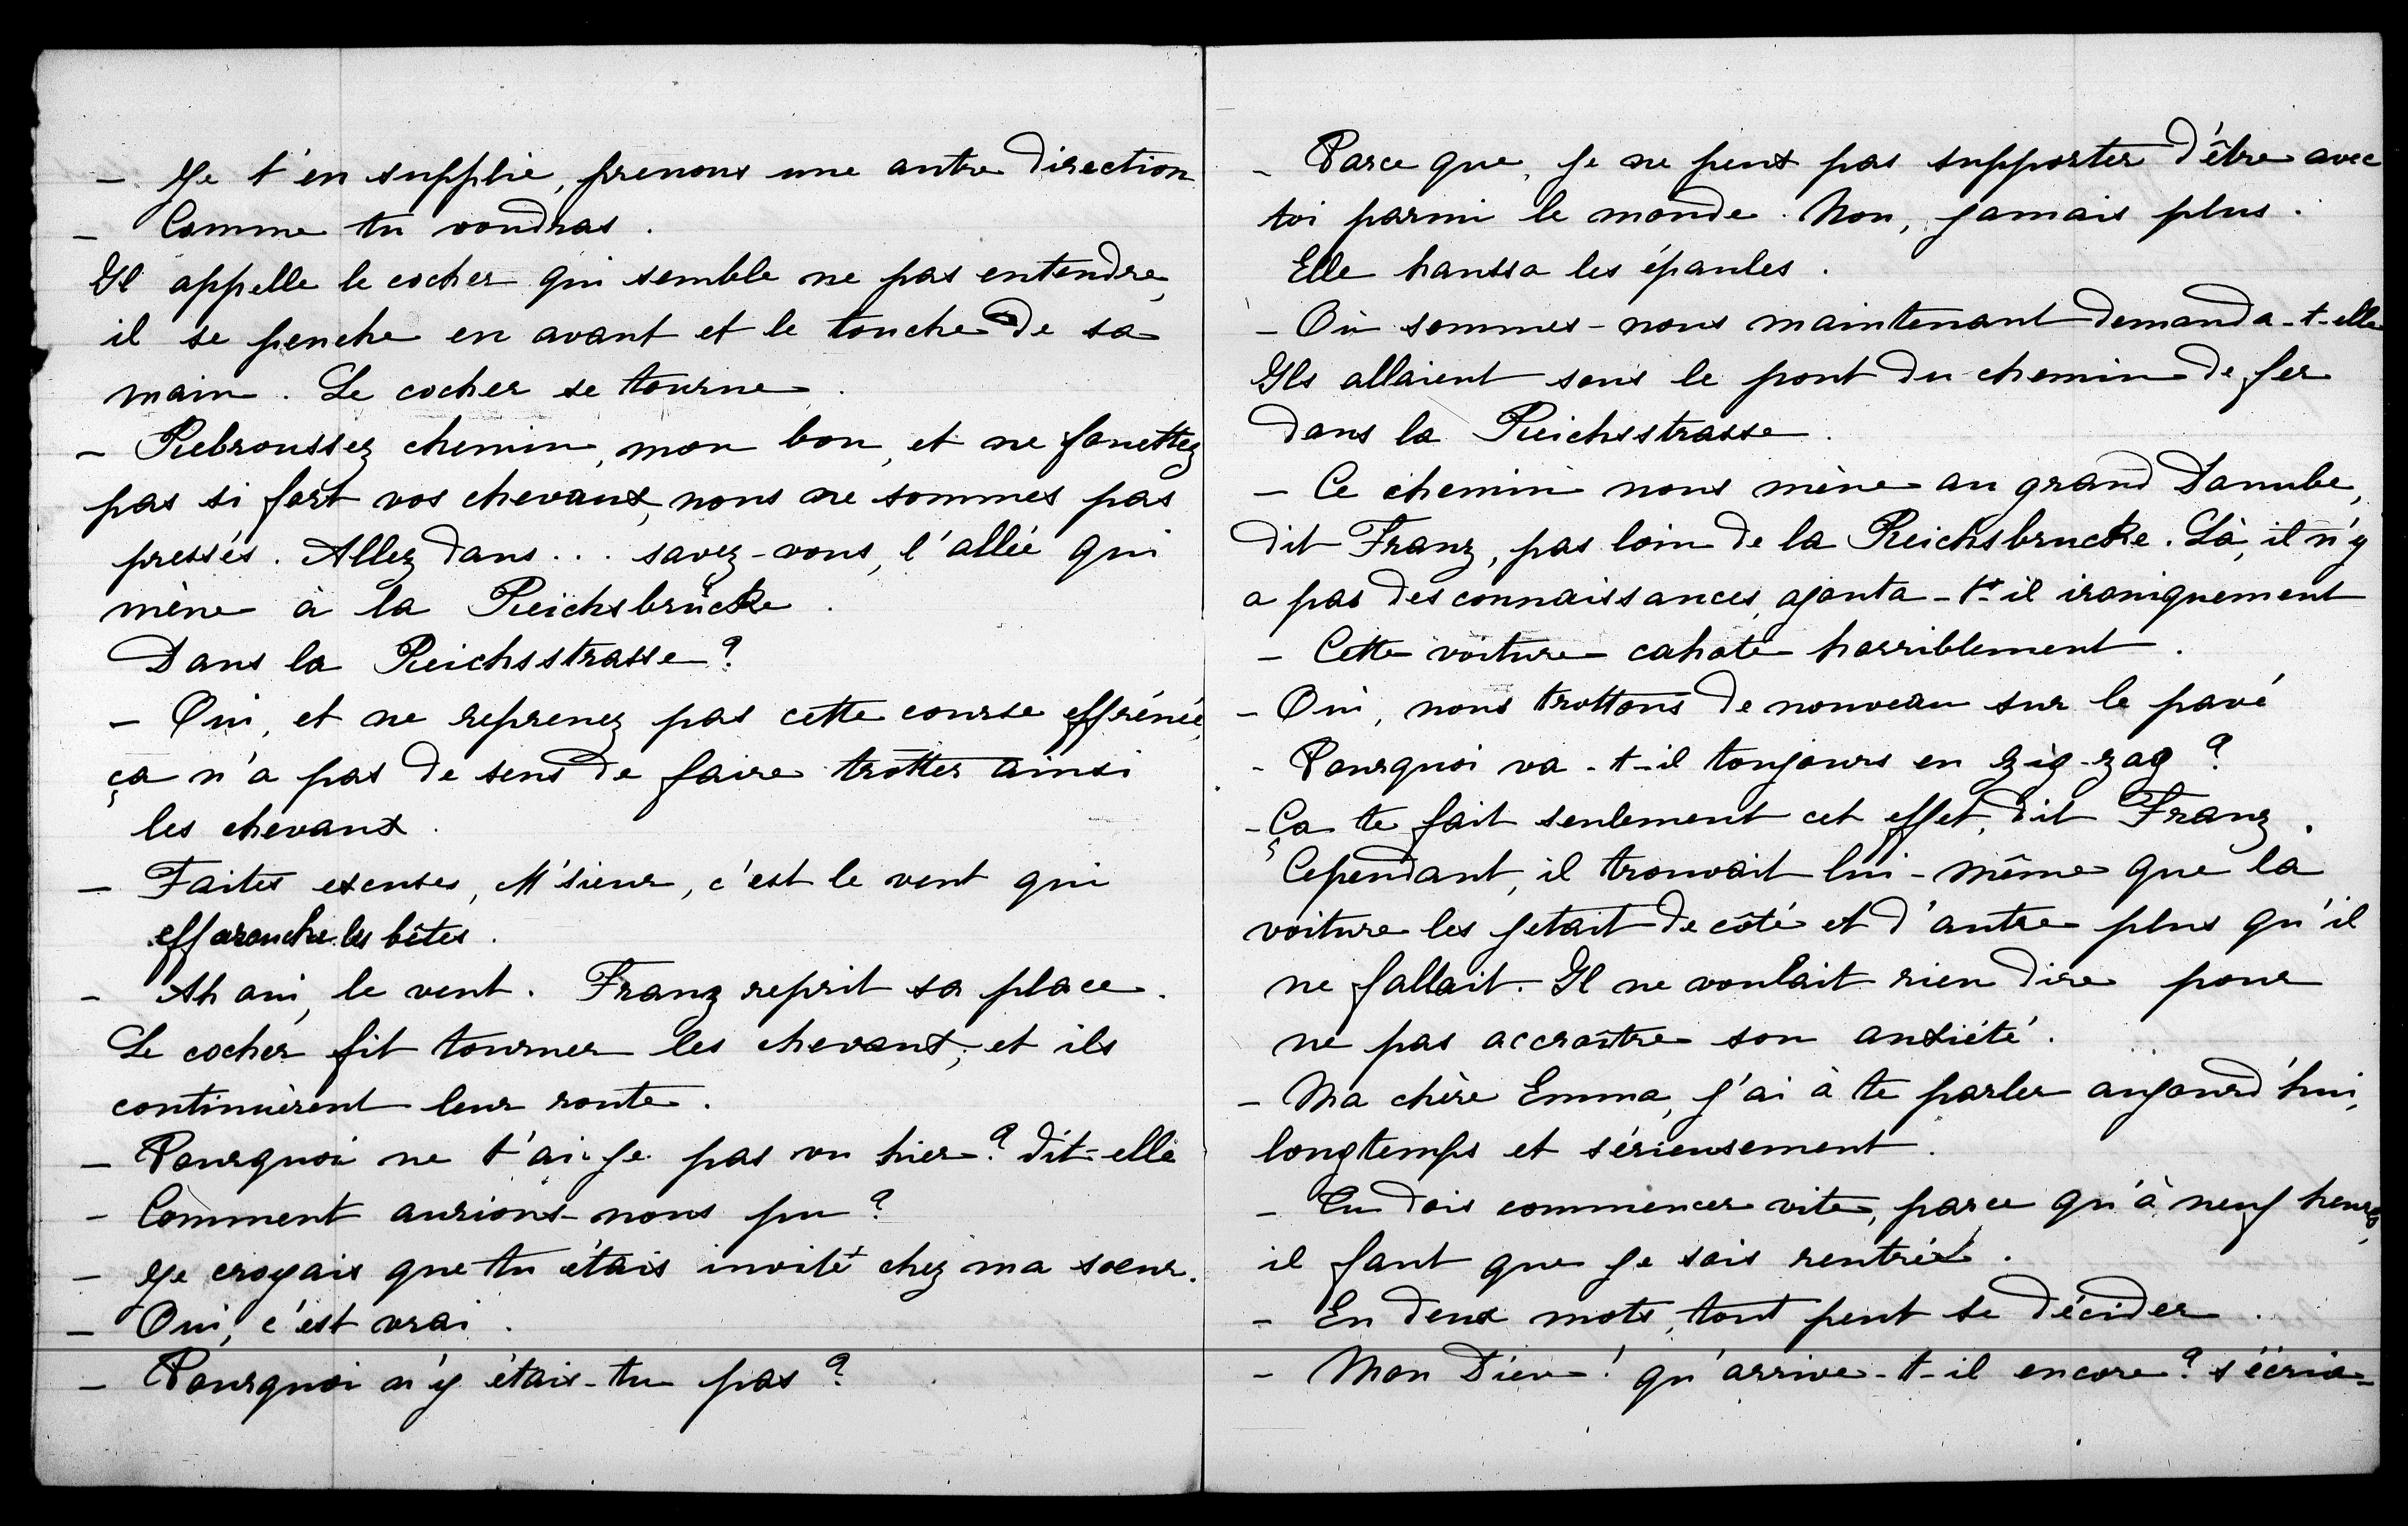 - Je t'en supplie, prenons une autre direction
- Comme tu voudras.
Il appelle le cocher qui semble ne pas entendre,
il se penche en avant et le touche de sa
main. Le cocher se tourne.
- Rebroussez chemin, mon bon, et ne fouettez
pas si fort vos chevaux, nous ne sommes pas
pressés. Allez dans... savez-vous, l'allée qui
mène à la Reichsbrücke.
Dans la Reichsstrasse?
- Oui, et ne reprenez pas cette course effrénée,
ça n'a pas de sens de faire trotter ainsi
les chevaux.
- Faites excuses, M'sieur, c'est le vent qui
effarouche les bêtes.
- Ah oui, le vent. Franz reprit sa place.
Le cocher fit tourner les chevaux; et ils
continuèrent leur route.
- Pourquoi ne t'ai-je pas vu hier? dit-elle
- Comment aurions-nous pu?
- Je croyais que tu étais invité chez ma soeur.
- Oui, c'est vrai.
- Pourquoi n'y étais-tu pas?
- Parce que, je ne peux pas supporter d'être avec
toi parmi le monde. Non, jamais plus.
Elle haussa les épaules.
- Où sommes-nous maintenant demanda-t-elle
Ils allaient sous le pont du chemin de fer
dans la Reichsstrasse.
- Ce chemin nous mène au grand Danube,
dit Franz, pas loin de la Reichsbrucke. Là, il n'y
a pas des connaissances, ajouta-t-il ironiquement
- Cette voiture cahote horriblement.
- Oui, nous trottons de nouveau sur le pavé
- Pourquoi va-t-il toujours en zig-zag?
- Ça te fait seulement cet effet, dit Franz.
Cependant, il trouvait lui-même que la
voiture les jetait de côté et d'autre plus qu'il
ne fallait. Il ne voulait rien dire pour
ne pas accroître son anxiété.
- Ma chère Emma, j'ai à te parler aujourd'hui,
longtemps et sérieusement.
- Tu dois commencer vite, parce qu'à neuf heures,
il faut que je sois rentrée.
- En deux mots, tout peut se décider.
- Mon Dieu! qu'arrive-t-il encore? s'écria-